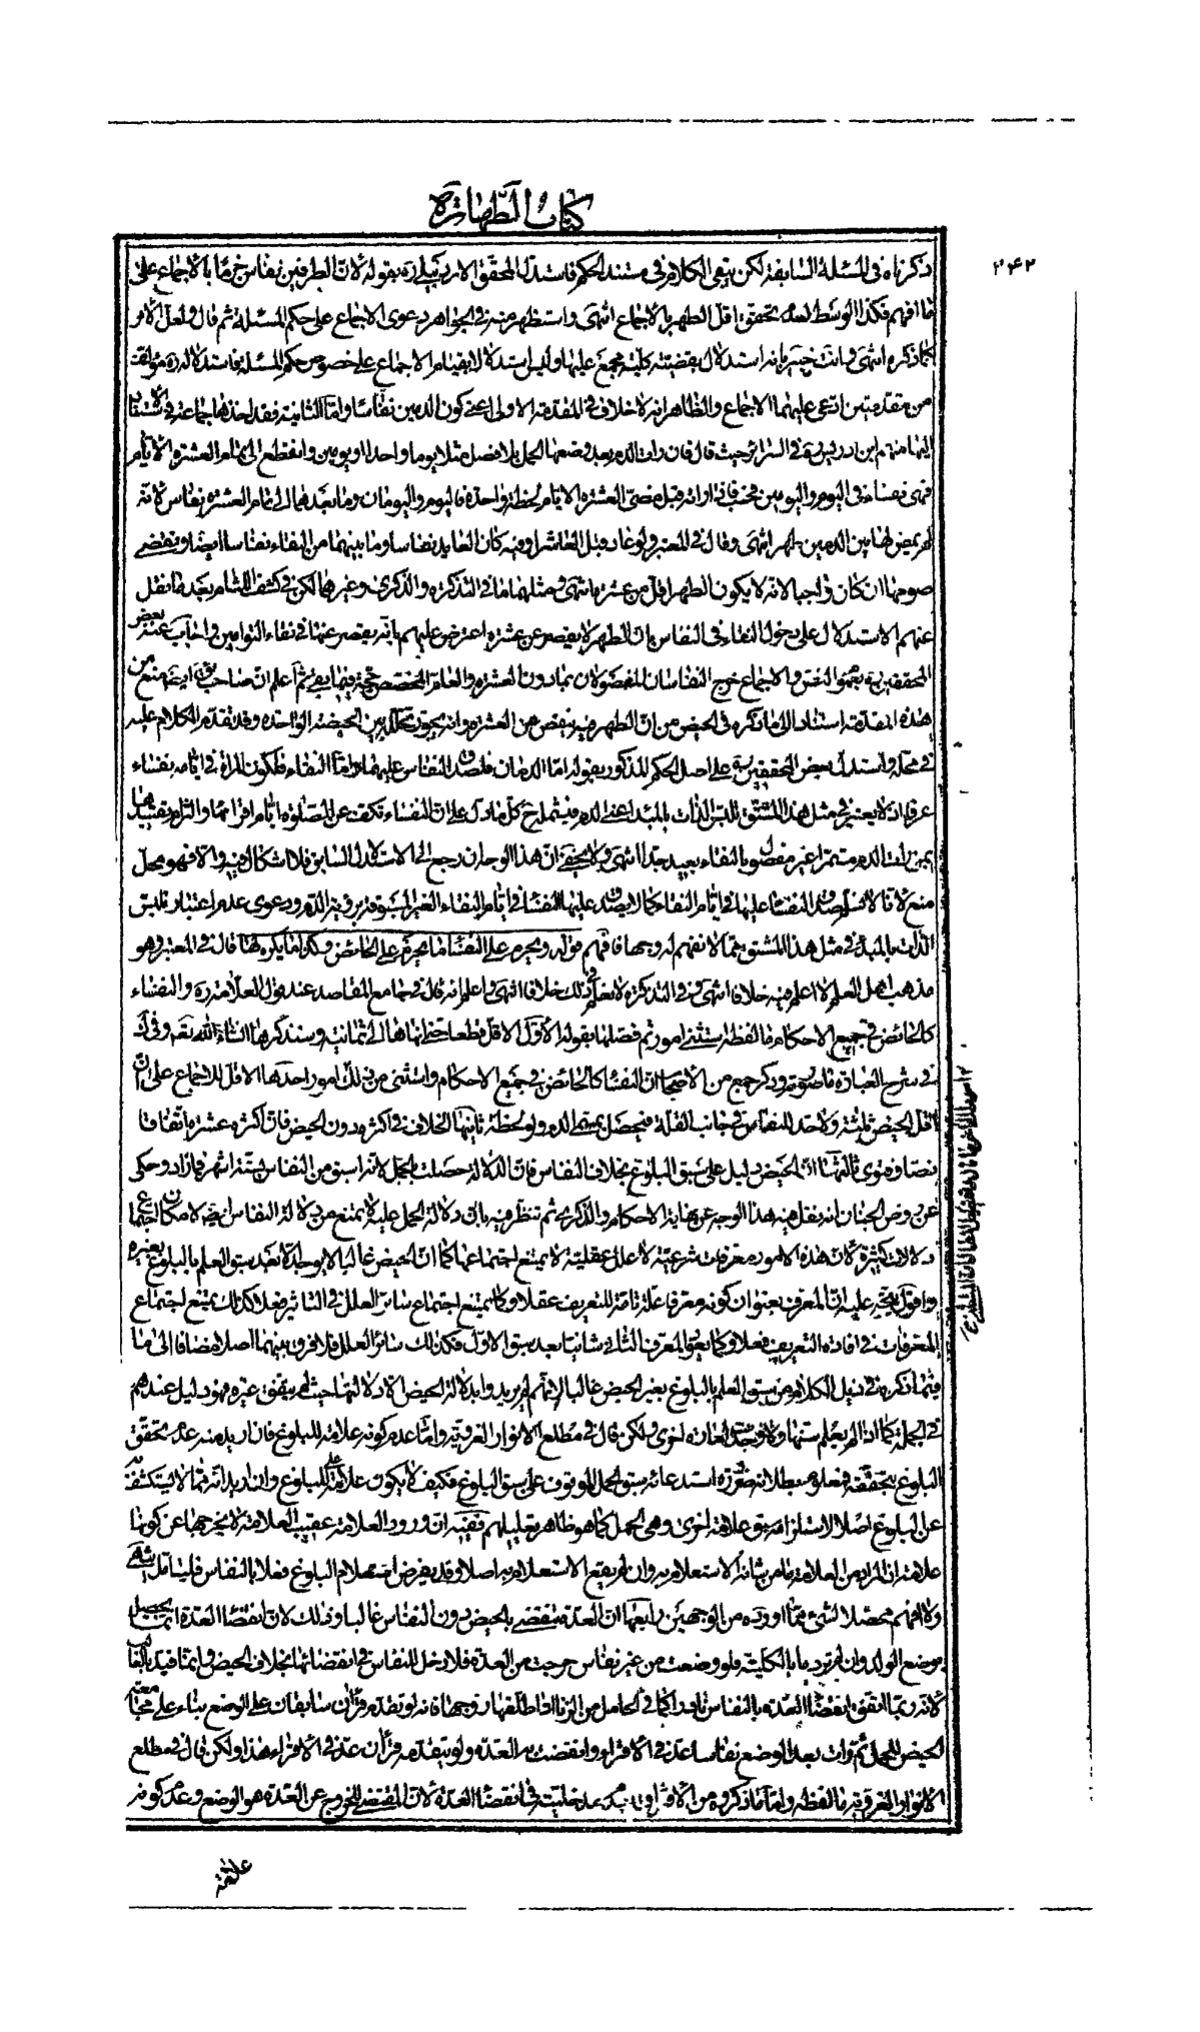 كتاب الطهارة
۲۴۲
ذكرناه فى المسئلة السابقة لكن يبقى الكلام فى مستند الحكم فاستدل المحقق الاردبيلى ره بقوله لان الطرفين نفاس خرج ما بالاجماع على
ما افهم فكذا الوسط لعدم تحقق اقل الطهر بالاجماع انتهى واستظهر منه فى الجواهر دعوى الاجماع على حكم المسئلة ثم قال ولعل الامر
كما ذكره انتهى وانت خبير بانه استدلال بقضية كلية مجمع عليها وليس استدلالا بقيام الاجماع على خصوص حكم المسئلة فاستدلاله ره مؤلف
من مقدمتين ادعى عليهما الاجماع والظاهر انه لا خلاف فى المقدمة الاولى اعنى كون الدمين نفاسا واما الثانية فقد اخذها جماعة فى الاستناد
اليها منهم ابن ادريس ره فى السرائر حيث قال فان رات الدم بعد وضعها الحمل بلا فصل مثلا يوما واحدا او يومين وانقطع الى تمام العشرة الايام
فهى نفساء فى اليوم واليومين فحسب فاذا راته قبل مضى العشرة الايام لحظة واحدة فاليوم واليومان وما بعدهما الى تمام العشرة نفاس لانه
لم يمض لها بين الدمين طهر انتهى وقال فى المعتبر ولو عاد قبل العاشر او فيه كان العايد نفاسا وما بينهما من النقاء نفاسا ايضا وتقضى
صومها ان كان واجبا لانه لا يكون الطهر اقل من عشرة انتهى ومثلهما ما فى التذكرة والذكرى وغيرهما لكن فى كشف اللثام بعد ما نقل
عنهم الاستدلال على دخول النقاء فى النفاس بان الطهر لا يقصر عن عشرة اعترض عليهم بانه يقصر عنها فى نقاء التوامين واجاب عنه بعض
المحققين ره بعموم النص والاجماع خرج النفاسان المفصولان بما دون العشرة والعام المخصص حجة فيما بقى ثم اعلم ان صاحب ئق ايضا منع من
هذه المقدمة استنادا الى ما ذكره فى الحيض من ان الطهر فيه ينقص من العشرة وانه يجوز تخلله بين الحيضة الواحدة وقد تقدم الكلام عليه
فى محله واستدل بعض المحققين ره على اصل الحكم المذكور بقوله اما الدمان فلصدق النفاس عليهما واما النقاء فلكون المراة فى ايامه نفساء
عرفا اذ لا يعتبر فى مثل هذا المشتق تلبس الذات بالمبدا اعنى الدم فيشملها كل ما دل على ان النفساء تكف عن الصلوة ايام اقرائها والتزام تقييدها
بمن رات الدم مستمرا غير مفصول بالنقاء بعيد جدا انتهى ولا يخفى ان هذا الوجه ان رجع الى الاستدلال السابق فلا اشكال فيه والا فهو محل
منع لانا لا نسلم صدق النفساء عليها فى ايام النقاء كما لا يصدق عليها النفساء فى ايام النقاء الغير المسبوقة برؤية الدم ودعوى عدم اعتبار تلبس
الذات بالمبدا فى مثل هذا المشتق مما لا نفهم له وجها فافهم قوله ويحرم على النفساء ما يحرم على الحائض وكذا ما يكره لها قال فى المعتبر وهو
مذهب اهل العلم لا اعلم فيه خلافا انتهى وفى التذكرة لا نعلم فى ذلك خلافا انتهى واعلم انه قال فى جامع المقاصد عند قول العلامة ره والنفساء
كالحائض فى جميع الاحكام ما لفظه يستثنى امور ثم فصلها بقوله الاول الاقل قطعا حتى انهاها الى ثمانية وسنذكرها انشاء الله تعم وفى لك
فى شرح العبارة ما صورته وذكر جمع من الاصحاب ان النفساء كالحائض فى جميع الاحكام واستثنى من ذلك امور احدها الاقل للاجماع على ان
اقل الحيض ثلثة ولا حد للنفاس فى جانب القلة فيحصل بمسمى الدم ولو لحظة ثانيها الخلاف فى اكثره دون الحيض فان اكثره عشرة اتفاقا
نصا وفتوى ثالثها ان الحيض دليل على سبق البلوغ بخلاف النفاس فان الدلالة حصلت بالحمل لانه اسبق من النفاس بستة اشهر فما زاد وحكى
عن روض الجنان انه نقل فيه هذا الوجه عن نهاية الاحكام والذكرى ثم تنظر فيه بان دلالة الحمل عليه لا يمنع من دلالة النفاس ايضا لامكان اجتماع
دلالات كثيرة لان هذه الامور معرفات شرعية لا علل عقلية لا يمتنع اجتماعها كما ان الحيض غالبا لا يوجد الا بعد سبق العلم بالبلوغ بغيره
واقول يتجه عليه ان المعرف بعنوان كونه معرفا علة تامة للتعريف عقلا وكما يمتنع اجتماع سائر العلل فى التاثير فعلا كذلك يمتنع اجتماع
المعرفات فى افادة التعريف فعلا وكما يبقى المعرف الثانى شانيا بعد سبق الاول فكذلك سائر العلل فلا فرق بينهما اصلا مضافا الى ما
فيما ذكره فى ذيل الكلام من سبق العلم بالبلوغ بغير الحيض غالبا لانهم لم يريدوا بدلالة الحيض الا دلالتها حيث لم يتفق غيره فهو دليل عندهم
فى الجملة كما اذا لم يعلم سنها ولا وجدت امارة اخرى ولكن قال فى مطلع الانوار الغروية واما عدم كونه علامة للبلوغ فان اريد منه عدم تحقق
البلوغ بتحققه فمعلوم بطلانه ضرورة استدعائه سبق الحمل الموقوف على سبق البلوغ فكيف لا يكون علامة للبلوغ وان اريد انه مما لا يستكشف به
عن البلوغ اصلا لاستلزامه سبق علامة اخرى وهى الحمل كما هو ظاهر تعليلهم ففيه ان ورود العلامة عقيب العلامة لا يخرجها عن كونها
علامة اذ المراد من العلامة ما من شانه الاستعلام به وان لم يقع الاستعلام به اصلا وقد يفرض استعلام البلوغ فعلا بالنفاس فليتامل انتهى
ولا افهم محصلا لشئ مما اورده من الوجهين رابعها ان العدة تنقضى بالحيض دون النفاس غالبا وذلك لان انقضاء العدة انما يحصل
بوضع الولد وان لم تر دما بالكلية فلو وضعت من غير نفاس خرجت من العدة فلا دخل للنفاس فى انقضائها بخلاف الحيض وانما قيد بالغالب
لانه ربما اتفق انقضاء العدة بالنفاس نادرا كما فى الحامل من الزنا اذا طلقها زوجها فانه لو تقدم قرءان سابقان على الوضع بناء على مجامعة
الحيض للحمل ثم رات بعد الوضع نفاسا عد فى الاقراء وانقضت به العدة ولو لم يتقدمه قرءان عد فى الاقراء هذا ولكن قال فى مطلع
الانوار الغروية ما لفظه واما ما ذكروه من الافتراق بعدم مدخليته فى انقضاء العدة لان المقتضى للخروج عن العدة هو الوضع وعدم كونه
علامة